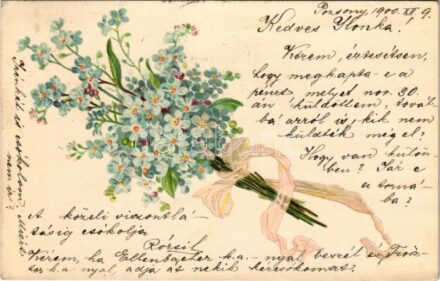 Pozsony, 1900. XII 9.
Kedves Ilonka!
Kérem, értesitsen,
hogy megkapta-e a
pénzt melyet nov. 30.
án küldöttem, továb-
bá arról is, kik nem
küldték még el?
Hogy van külön-
ben? Jár e
a torná-
ba?
A közeli viszontlá-
tásig csókolja
Rózsi
Kérem, ha Ellenbacher k.a.-nyal beszél és
k.a-nyal, adja át nekik kézcsókomat.
Irénkét is csókolom. Miért
nem ir?